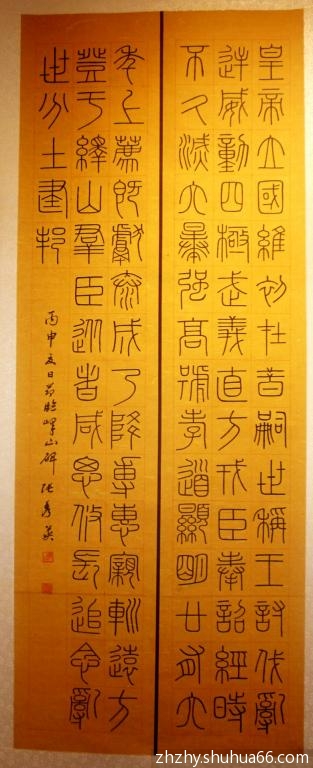 皇帝立國維初在昔嗣世稱王討伐亂
逆威動四極武義直方戎臣奉詔經時
不久滅六暴強高號孝道顯明廿有六
年上薦既獻泰成乃降專惠親巡遠方
登于繹山群臣從者咸思攸長追念亂
世分土建邦
丙申夏日節臨嶧山碑 張
zhzhy.shuhua66.com